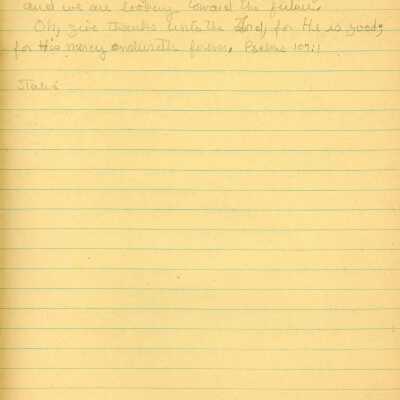 and we are looking toward the future.
Oh, give thanks unto the Lord, for He is good;
for His mercy endureth forever. Psalms 107:1